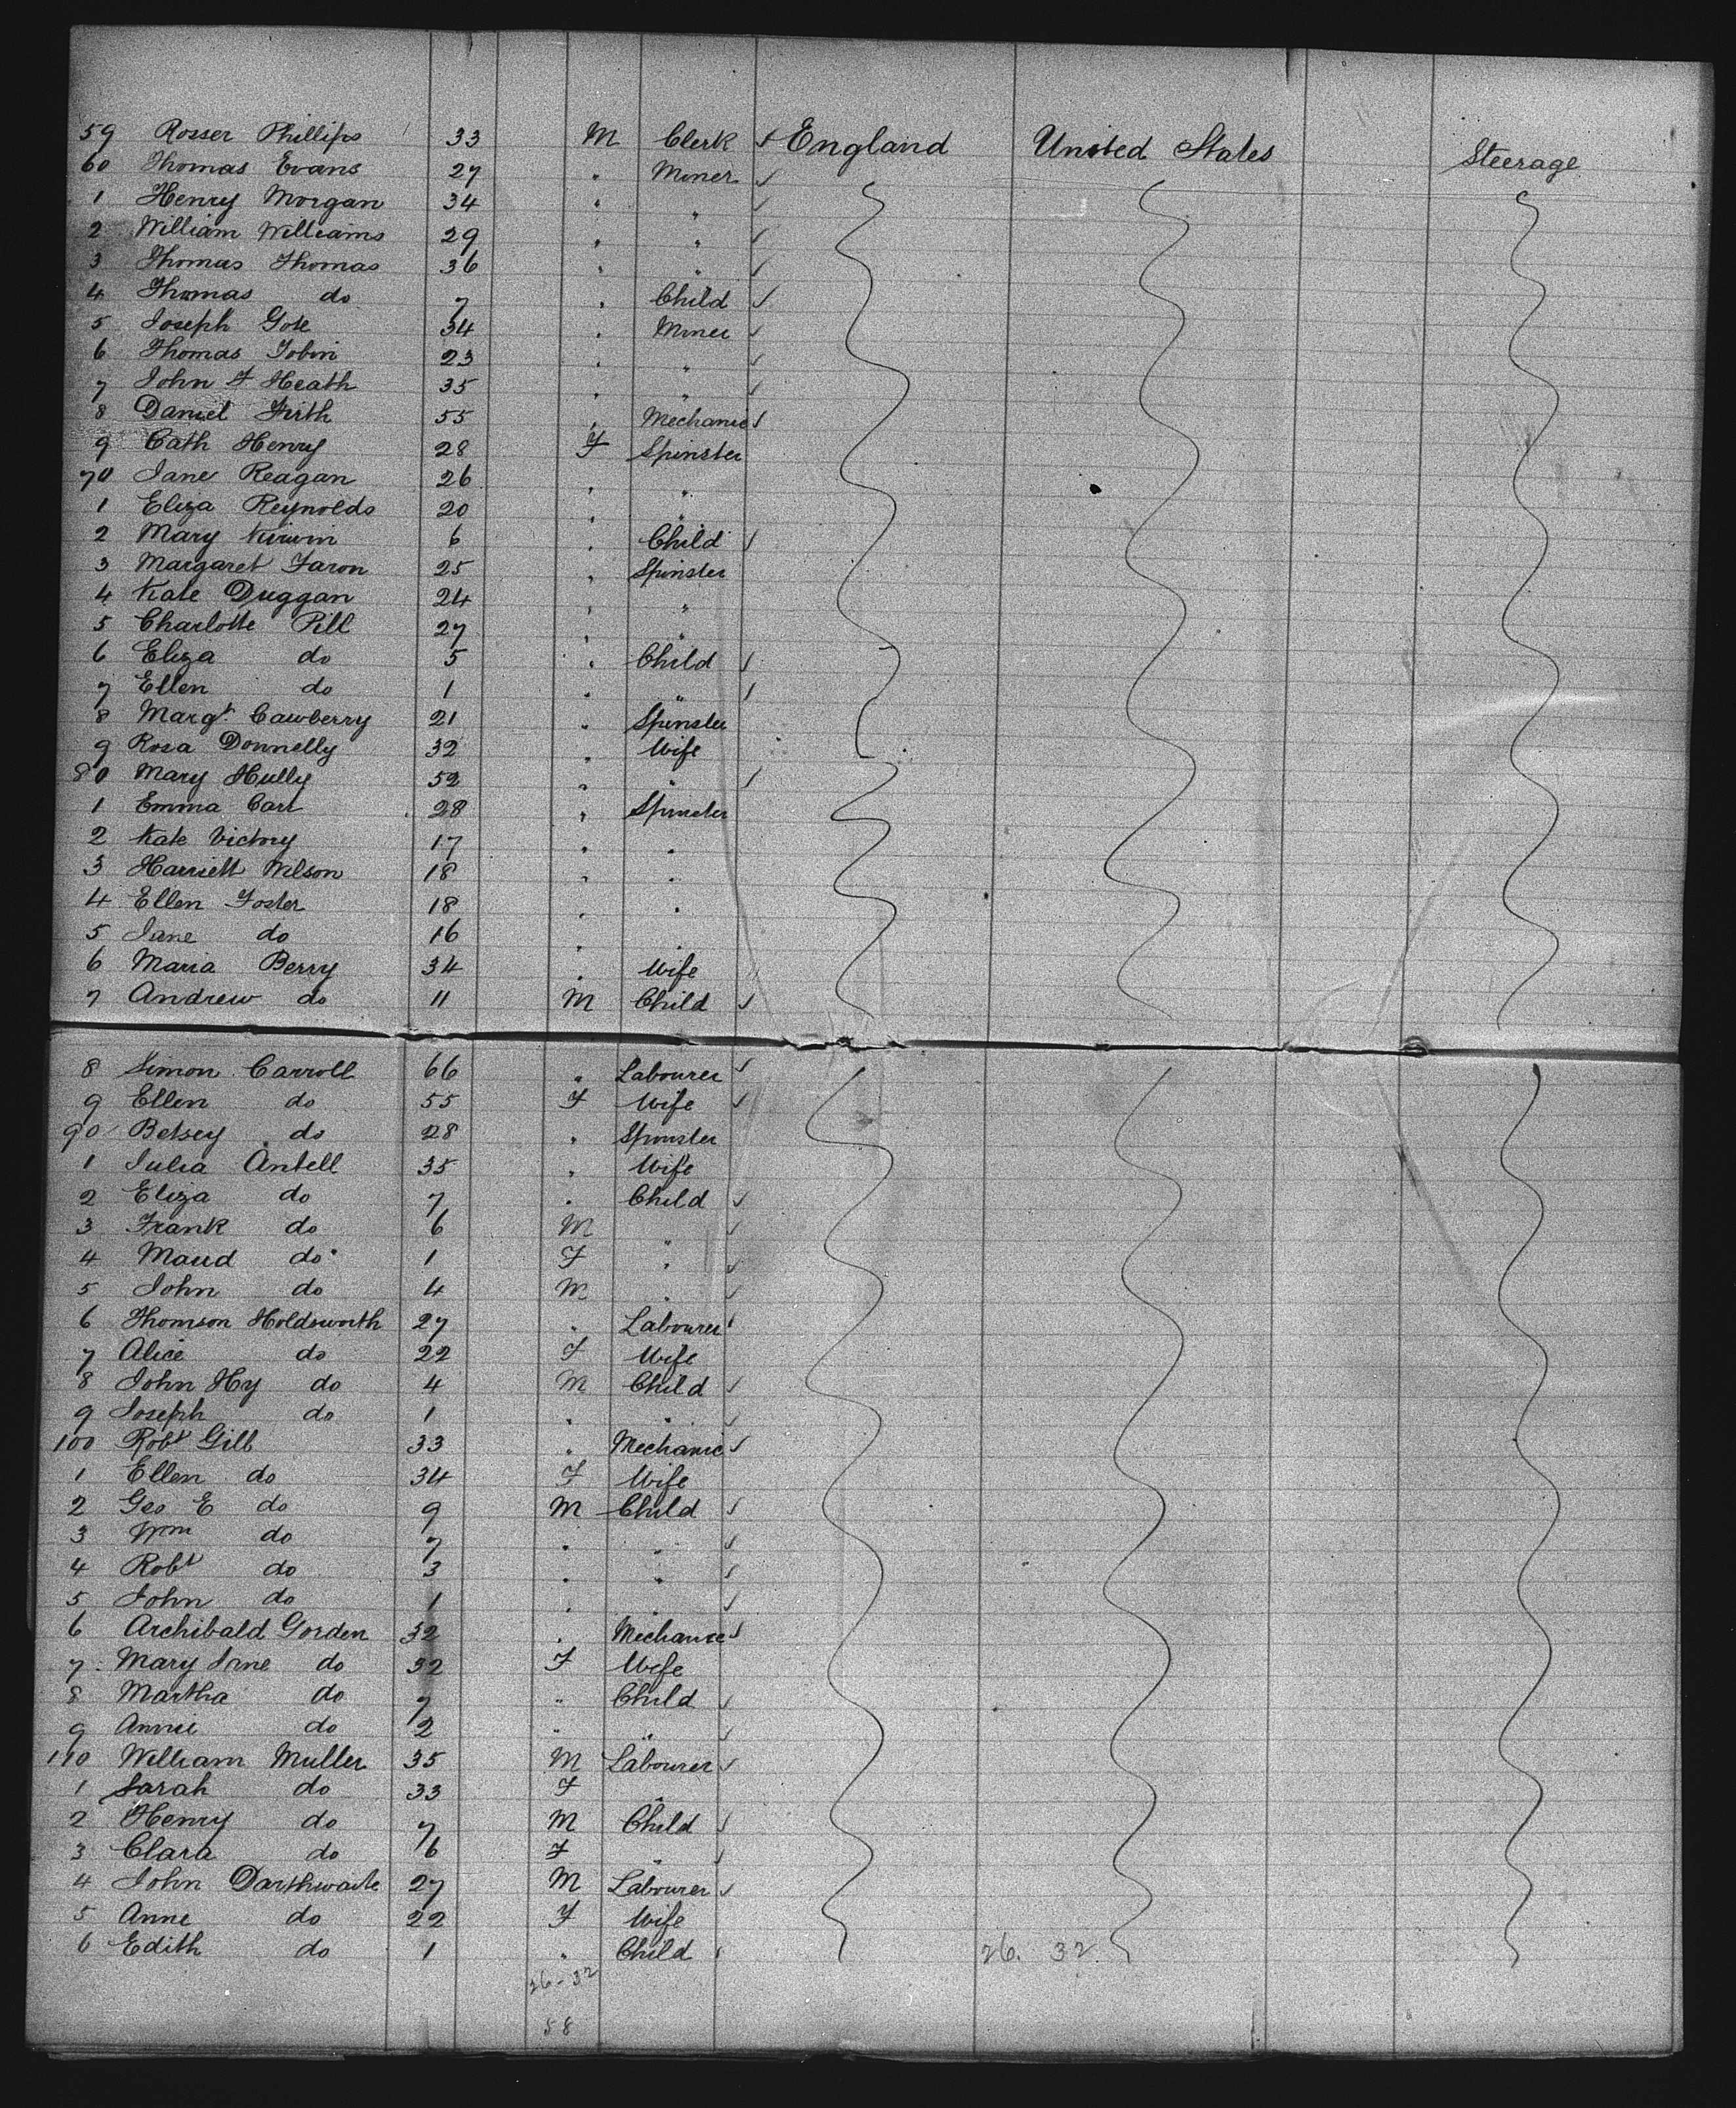 59 Rosser Phillips 33 M Clerk ✓ England United States Steerage
60 Thomas Evans 27 " Miner ✓
1 Henry Morgan 34 " " ✓
2 William Williams 29 " " ✓
3 Thomas Thomas 36 " " ✓
4 Thomas do 7 " Child ✓
5 Joseph 34 " Miner ✓
6 Thomas Tobin 23 " " ✓
7 John F Heath 35 " " ✓
8 Daniel Firth 55 " Mechanic ✓
9 Cath Henry 28 F Spinster
70 Jane Reagan 26 " "
1 Eliza Reynolds 20 " "
2 Mary Kirwin 6 " Child ✓
3 Margaret Faron 25 " Spinster
4 Kate Duggan 24 " "
5 Charlotte Pill 27 " "
6 Eliza do 5 " Child ✓
7 Ellen do 1 " " ✓
8 Margt Cawberry 21 " Spinster
9 Rosa Donnelly 32 " Wife
80 Mary Hully 52 " " ✓
1 Emma Carr 28 " Spinster
2 Kate Victory 17 " "
3 Harriett Wilson 18 " "
4 Ellen Foster 18 " "
5 Jane do 16 " "
6 Maria Berry 34 " Wife
7 Andrew do 11 M Child ✓
8 Simon Carroll 66 " Labourer ✓
9 Ellen do 55 F Wife ✓
90 Betsey do 28 " Spinster
1 Julia Antell 35 " Wife
2 Eliza do 7 " Child ✓
3 Frank do 6 M " ✓
4 Maud do 1 F " ✓
5 John do 4 M " ✓
6 Thomson Holdsworth 27 " Labourer ✓
7 Alice do 22 F Wife
8 John Hy do 4 M Child ✓
9 Joseph do 1 " " ✓
100 Robt Gill 33 " Mechanic ✓
1 Ellen do 34 F Wife
2 Geo E do 9 M Child ✓
3 Wm do 7 " " ✓
4 Robt do 3 " " ✓
5 John do 1 " " ✓
6 Archibald Gorden 32 " Mechanic ✓
7 Mary Jane do 32 F Wife
8 Martha do 7 " Child ✓
9 Annie do 2 " " ✓
110 William Muller 35 M Labourer ✓
1 Sarah do 33 F "
2 Henry do 7 M Child ✓
3 Clara do 6 F " ✓
4 John Darthwaite 27 M Labourer ✓
5 Anne do 22 F Wife
6 Edith do 1 " Child ✓ 26. 32
26-32
58